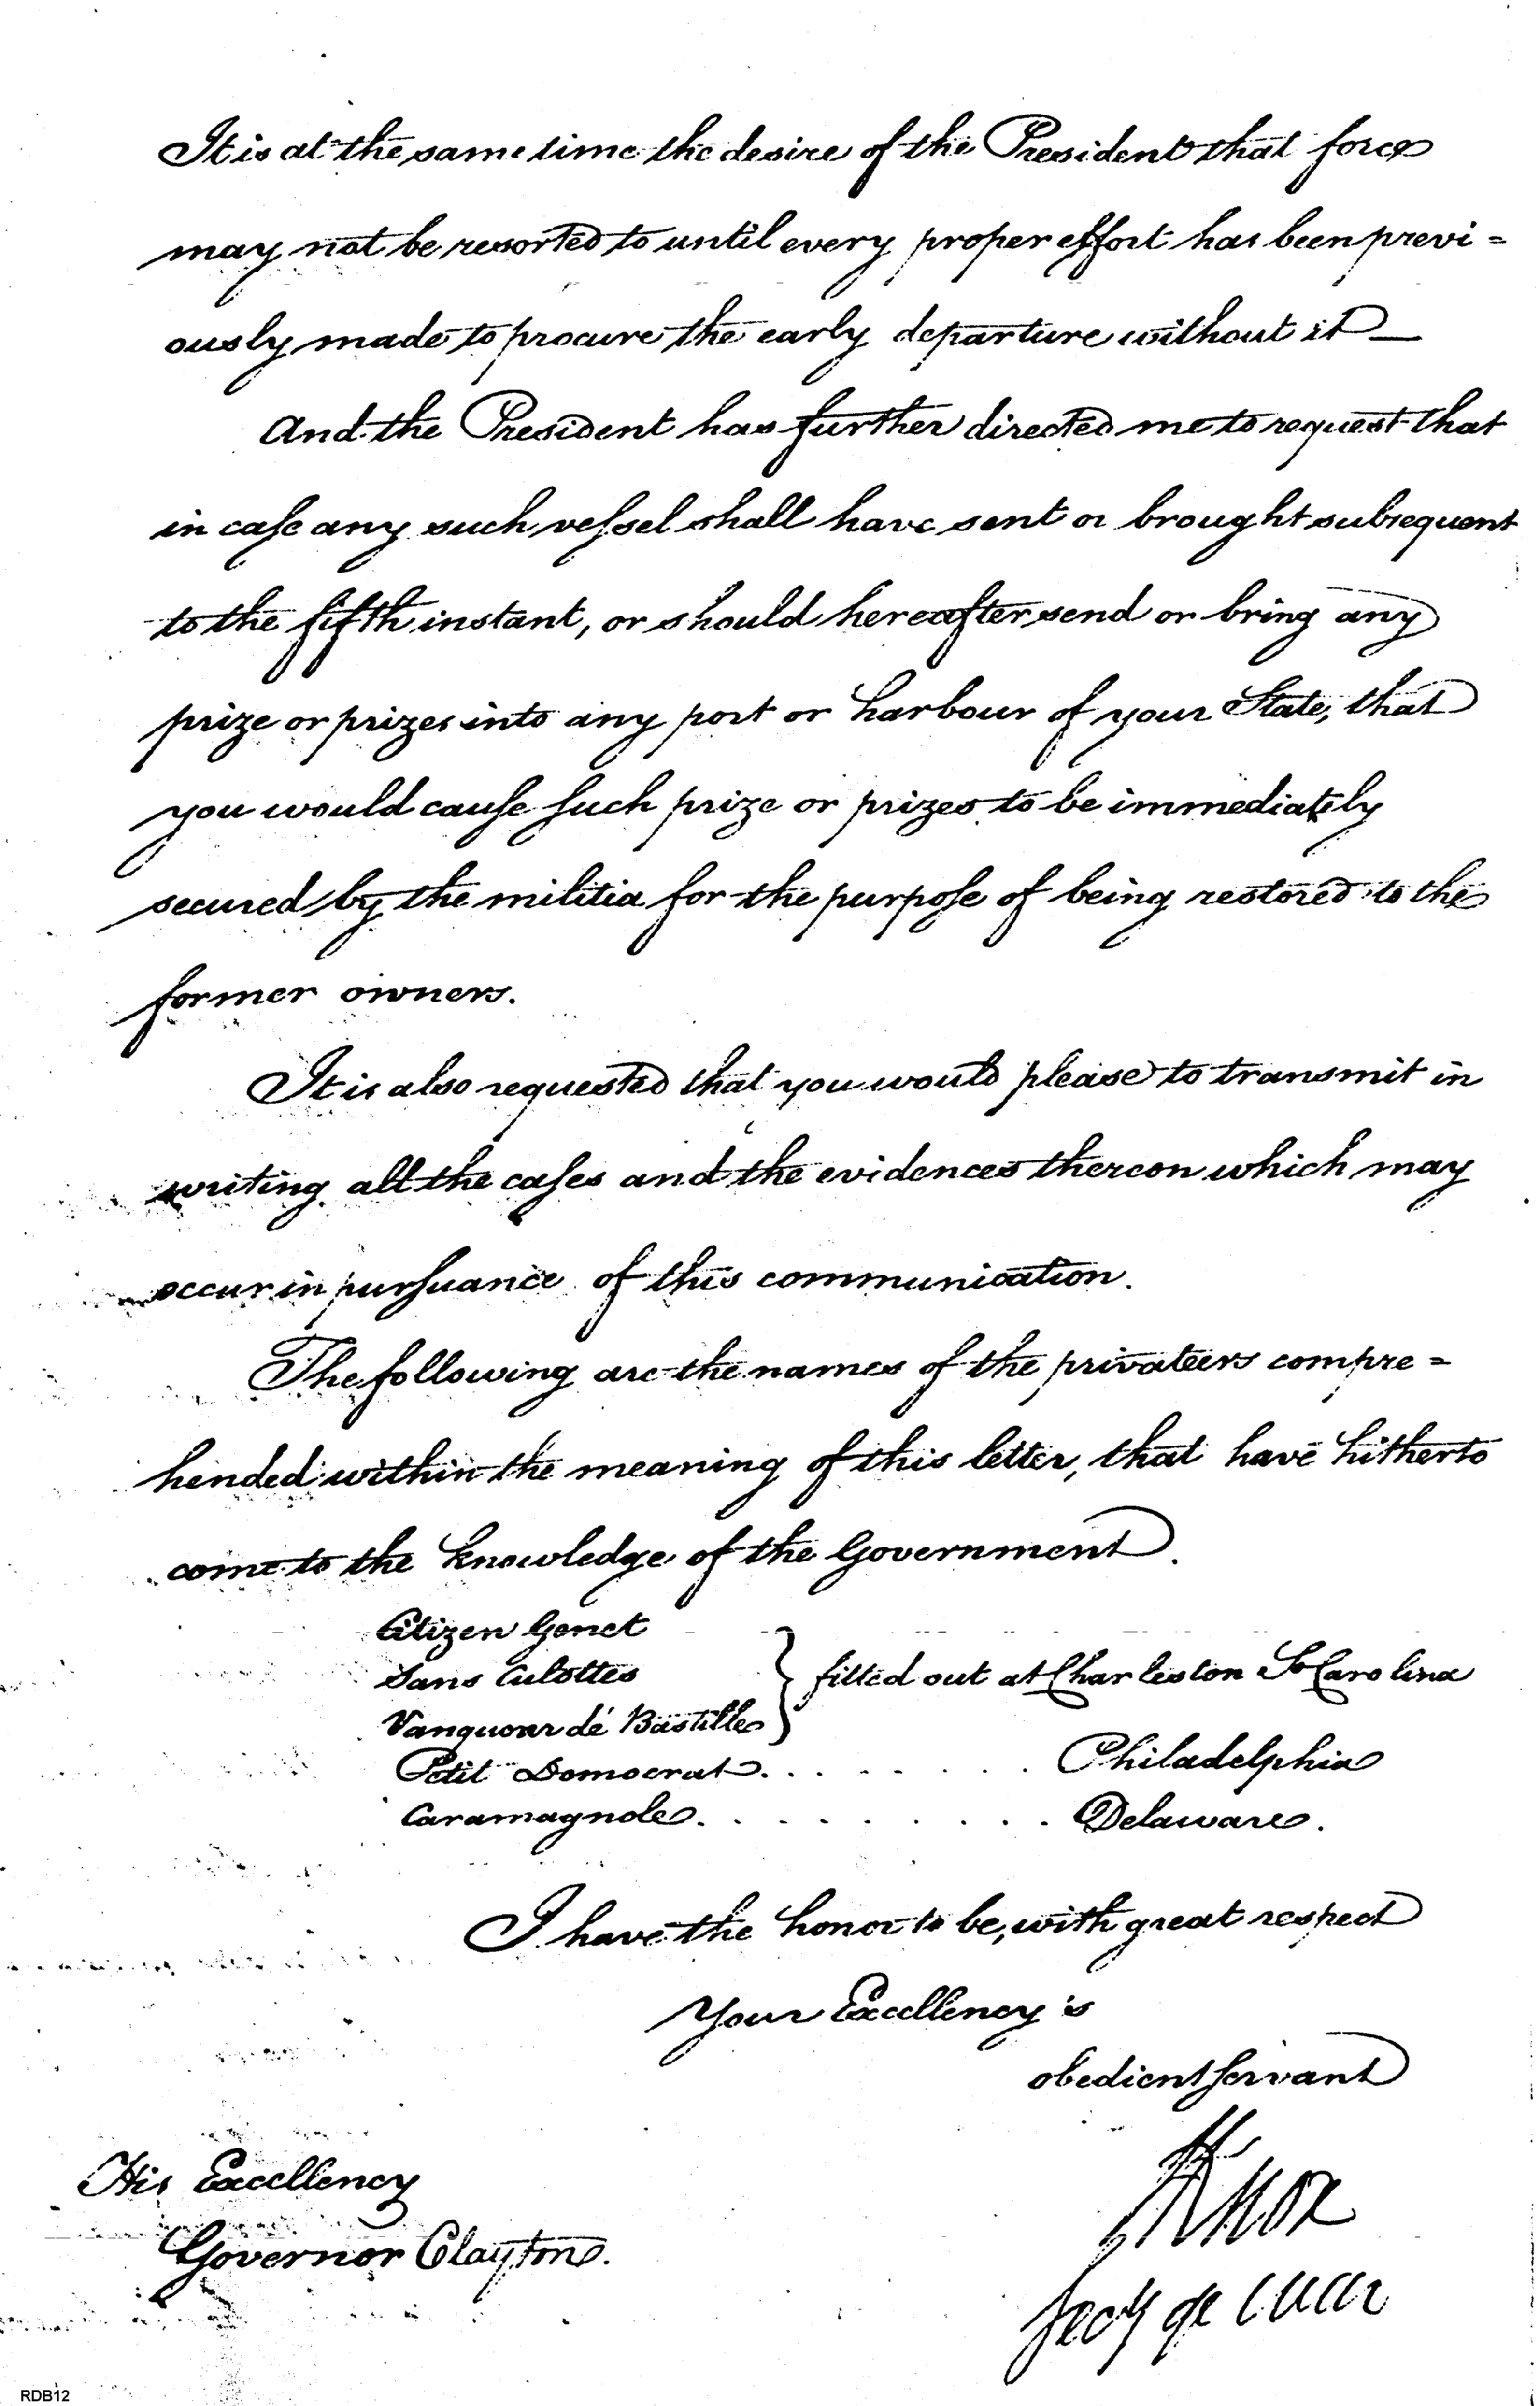 It is at the same time the desire of the President that force
may not be resorted to until every proper effort has been previ=
ously made to procure the early departure without it —
And the President has further directed me to request that
in caſe any such veſsel shall have sent or brought subsequent
to the fifth instant, or should hereafter send or bring any
prize or prizes into any port or harbour of your State, that
you would cauſe ſuch prize or prizes to be immediately
secured by the militia for the purpoſe of being restored to the
former owners.
It is also requested that you would please to transmit in
writing all the caſes and the evidences thereon which may
occur in purſuance of this communication.
The following are the names of the privateers compre=
hended within the meaning of this letter, that have hitherto
come to the knowledge of the Government.
Citizen Genet
Sans Culottes } fitted out at Charleston So Carolina
Vanquour dé Bastille
Petit Democrat . . . . . . . Philadelphia
Caramagnole . . . . . . . . . Delaware.
I have the honor to be, with great respect
Your Excellency's
obedient ſervant
HKnox
Secy of War
His Excellency
Governor Clayton.
RDB12